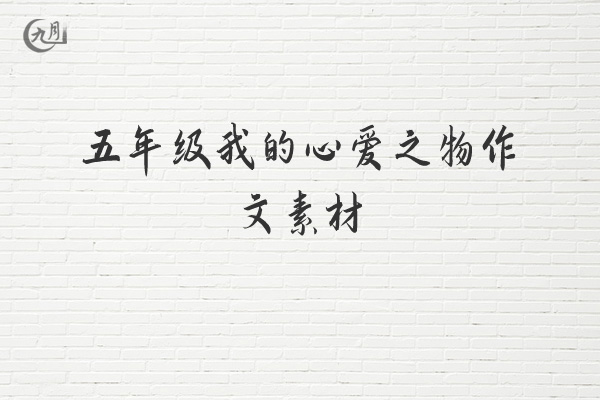 九月
五年级我的心爱之物作
文素材